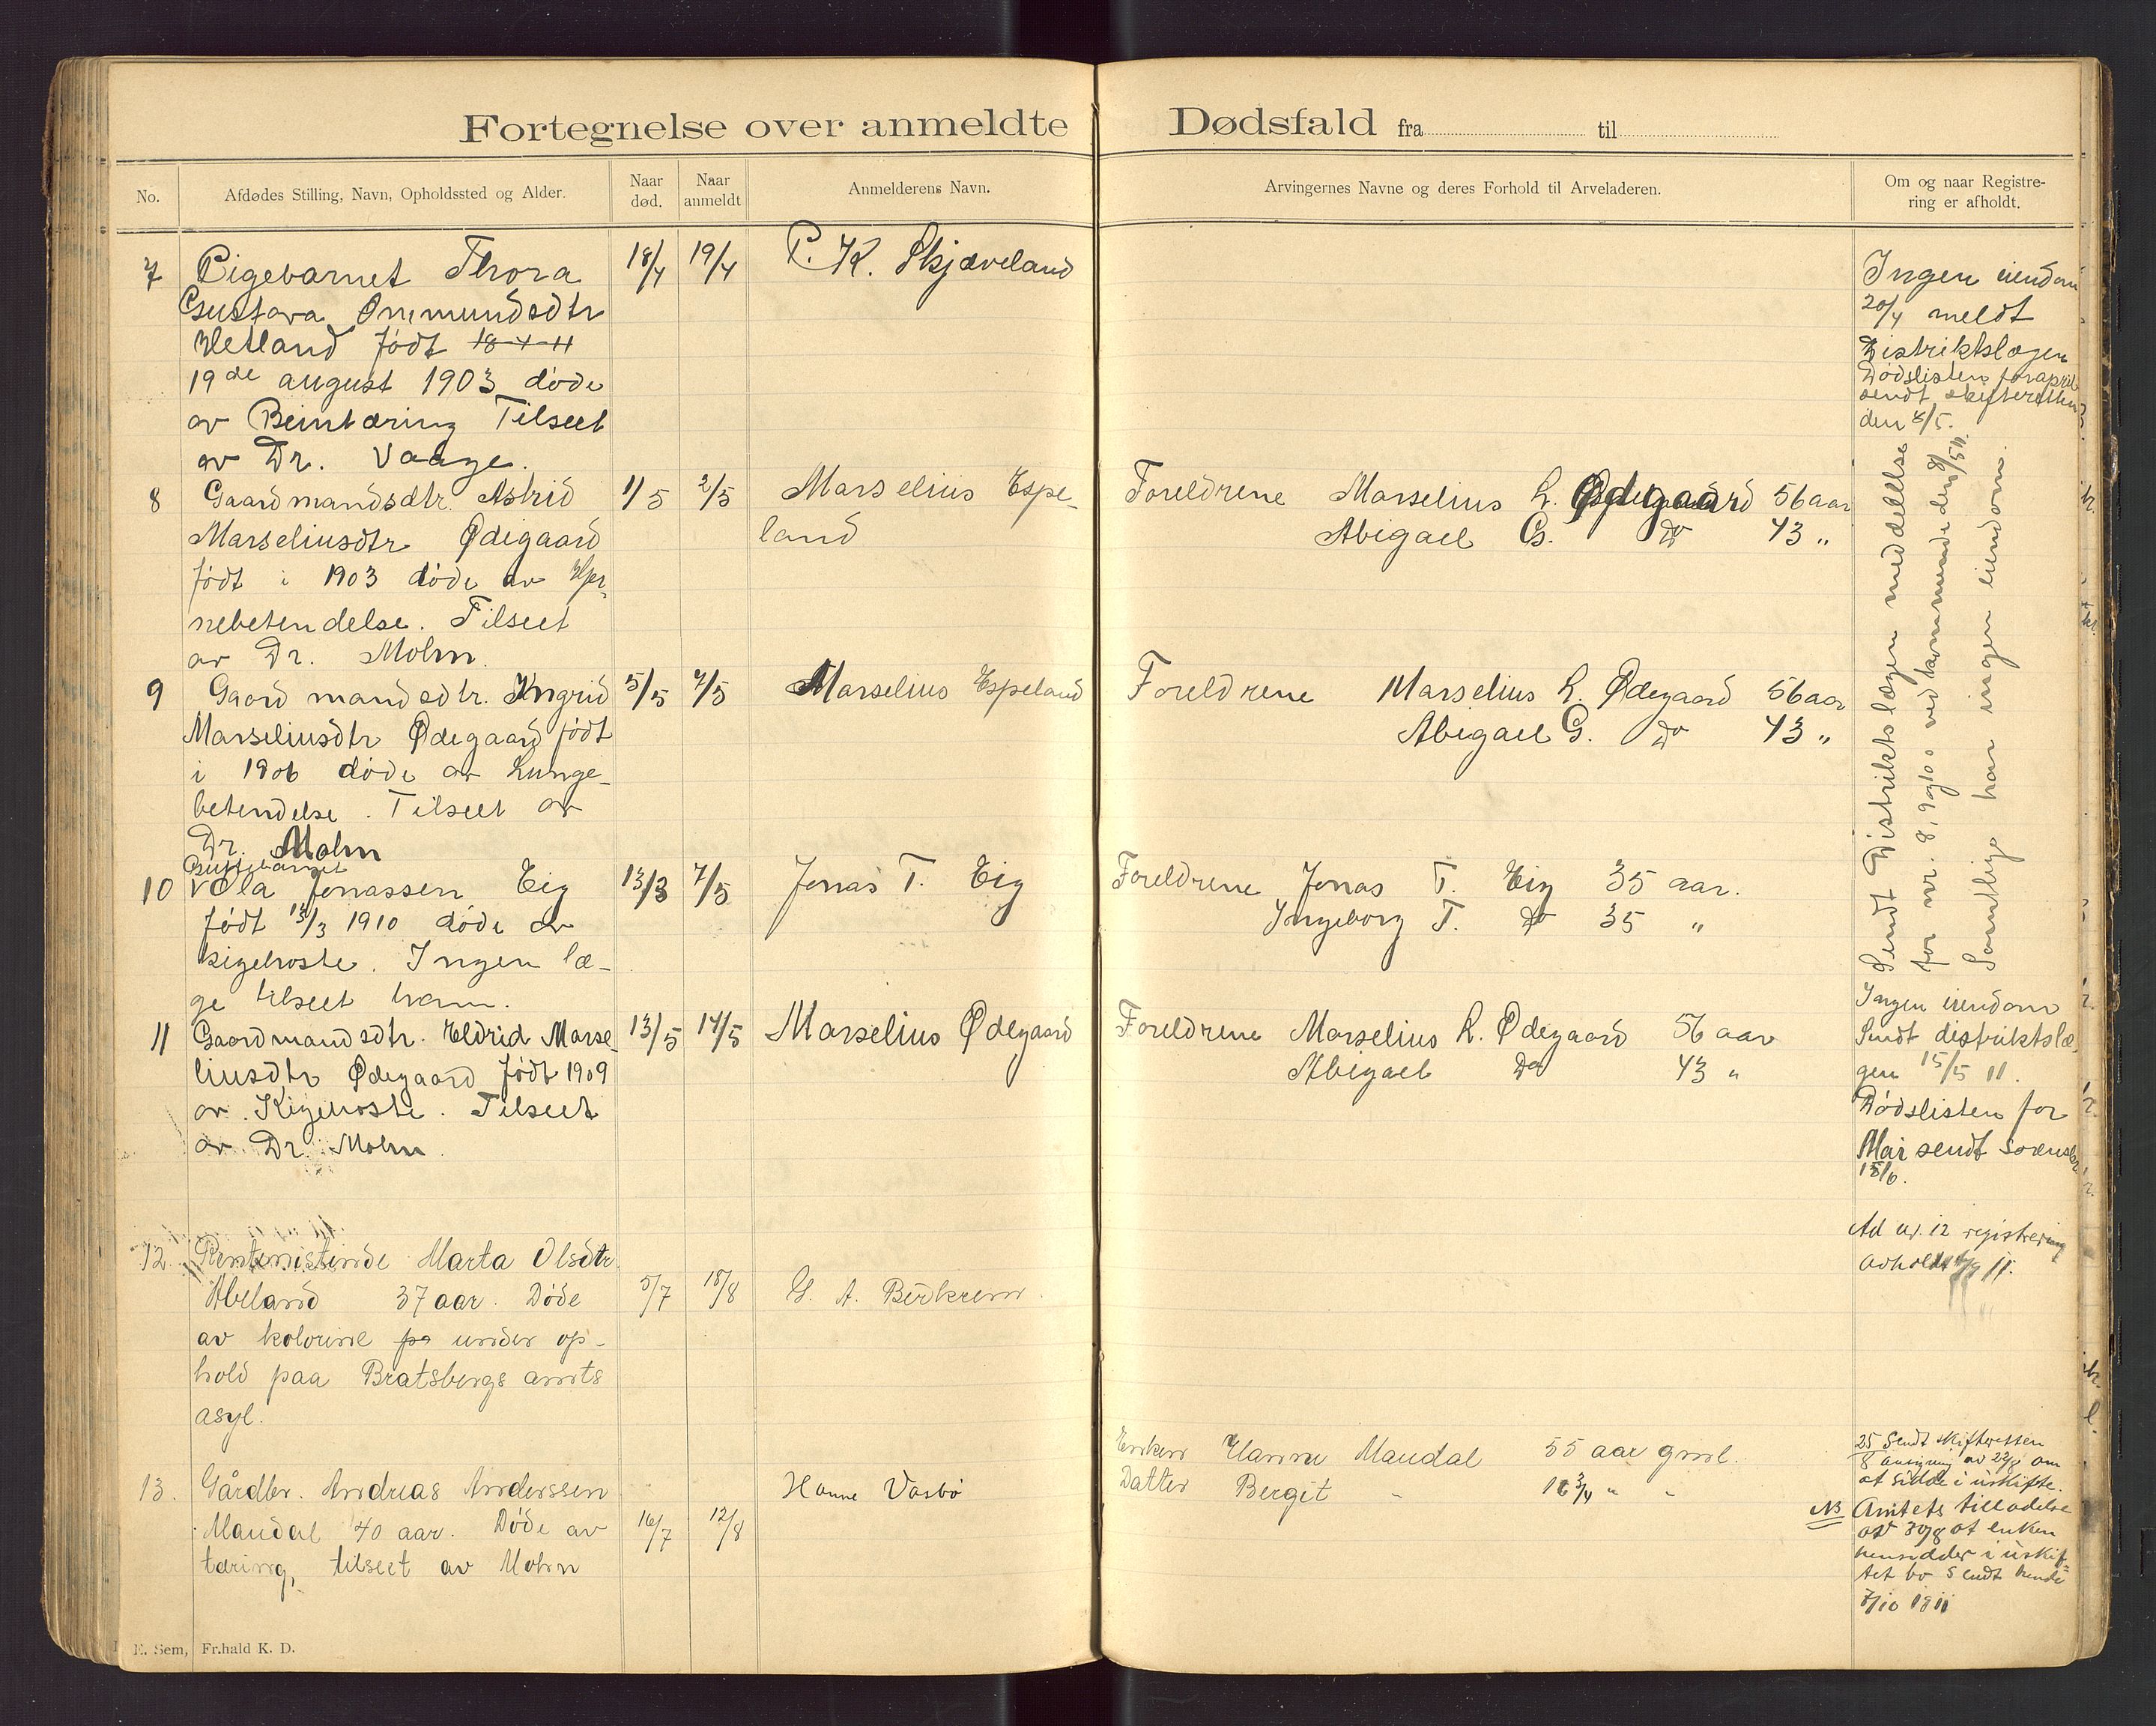 Fortegnelse over anmeldte Dødsfald fra til
No.
Afdødes Stilling, Navn, Opholdssted og Alder.
Naar død.
Naar anmeldt
Anmelderens Navn.
Arvingernes Navne og deres Forhold til Arveladeren.
Om og naar Registre-
ring er afholdt.
7 Pigebarnet Thora 18/4 19/4 P. K. Skjæveland
Gustava Ommundsdtr
Hetland født 18-4-11
19de august 1903 døde
av Beintæring Tilseet
av Dr. Vaage.
Ingen eiendom
20/4 meldt
Distriktslægen
Dødslisten for april
sendt skifteretten
den 4/5.
8 Gaardmandsdtr. Astrid 1/5 2/5 Marselius Espe- Foreldrene Marselius L. Ødegaard 56 aar
Marseliusdtr Ødegaard land Abigael G. Do 43 "
født i 1903 døde av Hjer-
nebetendelse. Tilseet
av Dr. Mohn.
9 Gaardmandsdtr. Ingrid 5/5 7/5 Marselius Espeland Foreldrene Marselius L. Ødegaard 56 aar
Marseliusdtr Ødegaard født Abigael G. Do 43 "
i 1906 døde av Lunge-
betendelse. Tilseet av
Dr. Mohn
Guttebarnet
10 Ola Jonassen Eig 13/3 7/5 Jonas T. Eig Foreldrene Jonas T. Eig 35 aar.
født 13/3 1910 døde av Ingeborg T. Do 35 "
kighoste. Ingen læ-
ge tilseet ham.
Sendt Distriktslægen meddelelse
for nr. 8, 9 og 10 vedkommende den 8/5 11.
Samtlige har ingen eiendom.
11 Gaardmandsdtr. Eldrid Marse- 13/5 14/5 Marselius Ødegaard Foreldrene Marselius L. Ødegaard 56 aar
liusdtr Ødegaard født 1909 Abigael Do 43 "
av Kighoste. Tilseet
av Dr. Mohn.
Ingen eiendom
Sendt distriktslæ-
gen 15/5 11.
Dødslisten for
Mai sendt
15/6.
12. Rentenistinde Marta Olsdtr.
Abeland 37 aar. Døde 5/7 18/8 G. A. Birkrem.
av kolerine pa under op-
hold paa Bratsbergs amts
asyl.
Ad nr. 12 registrering
avholdt /9 11.
Enken Hanne Maudal 55 aar gml.
13. Gårdbr. Andreas Anderssen Hanne Vasbø Datter Bergit - 16 3/4 " -
Maudal 40 aar. Døde av 16/7 12/8
tæring, tilseet av Mohn
25/8 Sendt skifteretten
ansøgning av 22/8 om
at sidde i uskifte.
NB Amtets tilladelse
av 30/8 at enken
hensidder i uskif-
tet bo sendt hende
7/10 1911
E. Sem, Fr.hald K. D.